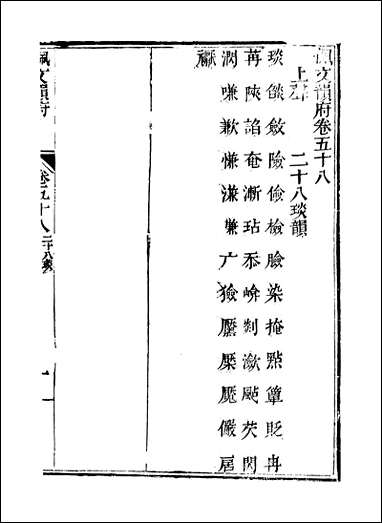 佩文韻府卷五十八
上聲　二十八琰韻
琰燄斂險儉檢臉染掩點簟貶冉
苒陜諂奄漸玷忝崦剡瀲颭芡閃
歉慊溓㡘广獫魘黶儼扊
佩文韻府
卷五十八
二十八琰
一